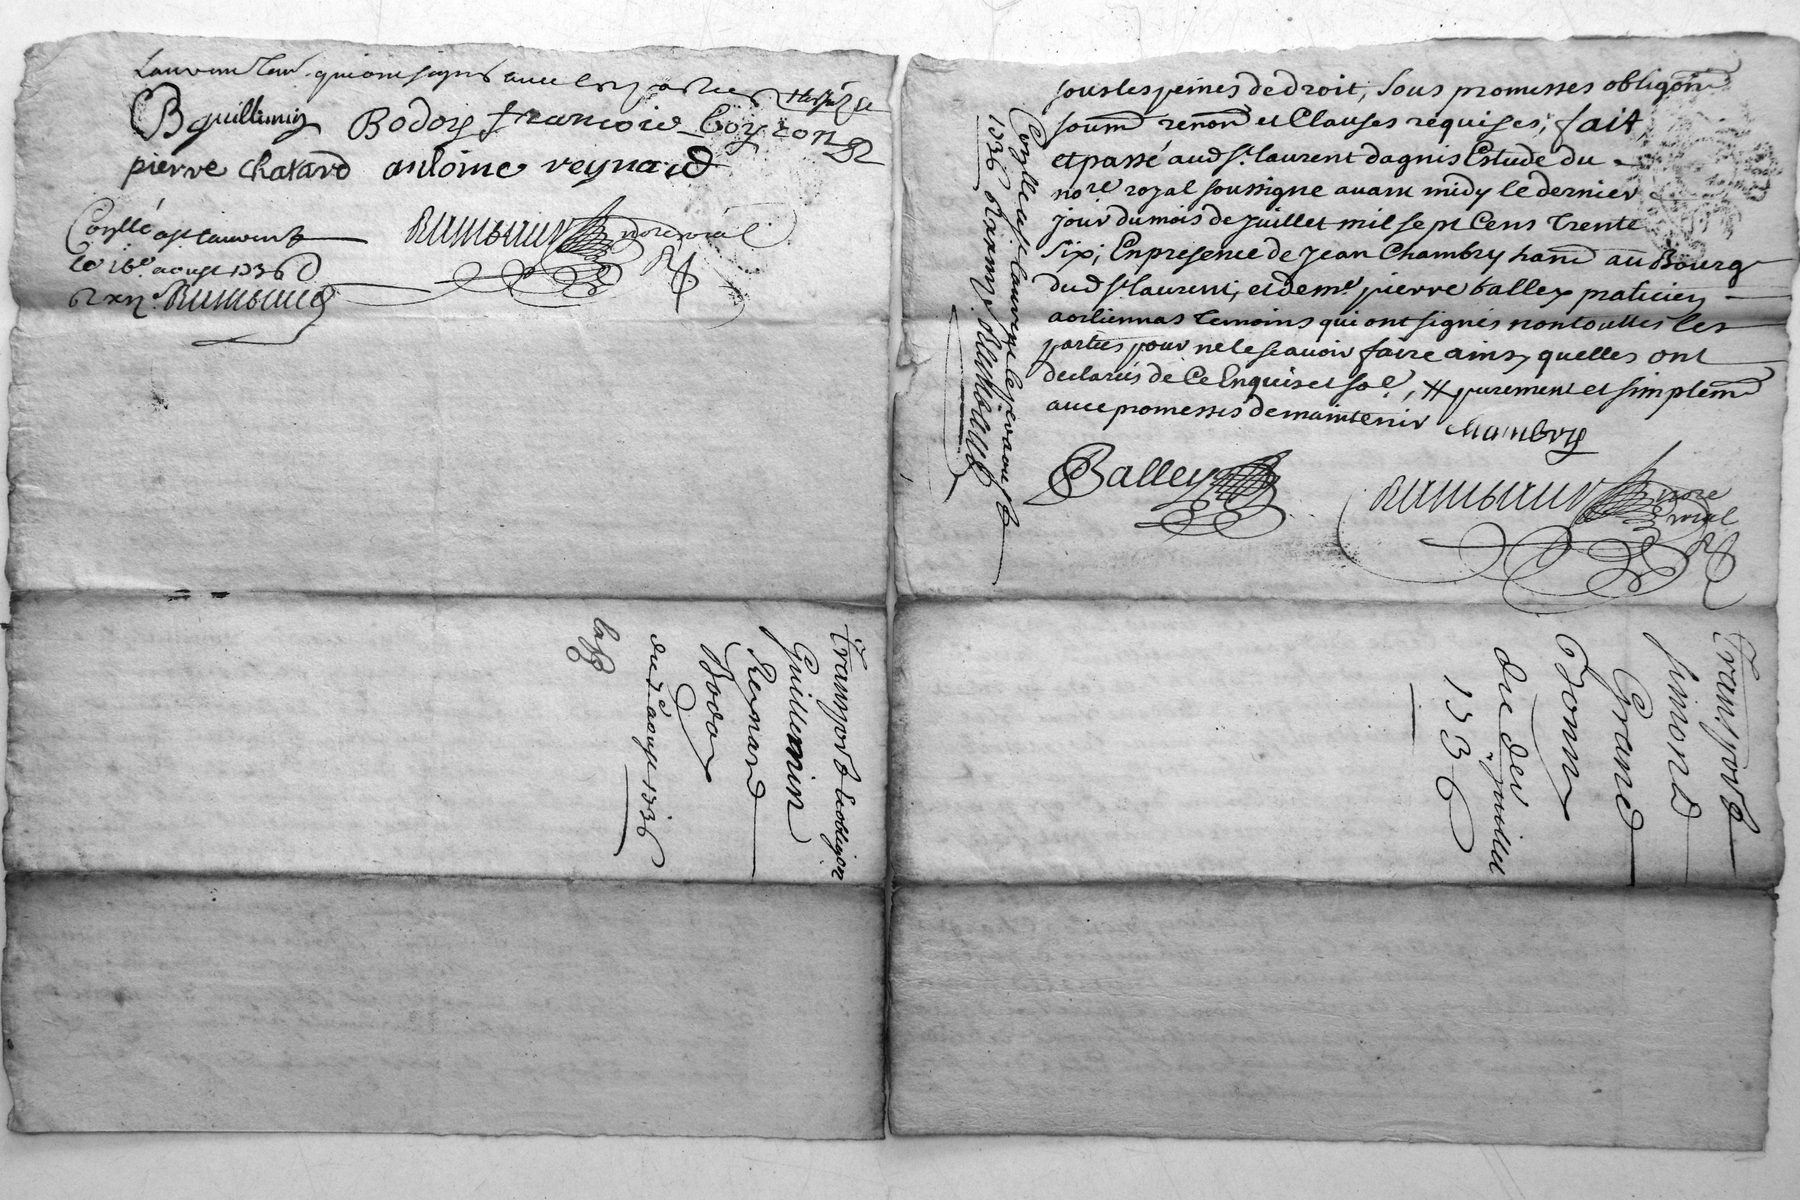 Laurent qui ont signé avec les parties
BGuillumin Bodoy francois Coyron
pierre chatard antoine reynaud
Conllé a st Laurent
le 16e. aoust 1736
Rambaud nore royal
Rambaud
Transport & obligõn
Guillemin
Reynard
Bodoy
du 7e aoust 1736
sous les peines de droit, sous promesses obligõns
soumõn renõn et Clauses requises, fait
et passé aud st. laurent dagnis Estude du
nore. royal soussigne avant midy le dernier
jour du mois de juillet mil sept Cens trente
six, En presence de jean Chambry hañt au Bourg
dud st laurent, et de me pierre balley praticien
a orliennas temoins qui ont signés non touttes les
parties pour ne le scavoir faire ainsy quelles ont
declarés de Ce Enquis et so.e, # purement et simplemt
avec promesses de maintenir Chambry
Balley
Rambaud nore
royal
Conllé a st. laurent le
1736 Rambaud
Transport
simond
Grand
Bonin
du der juillet
1736